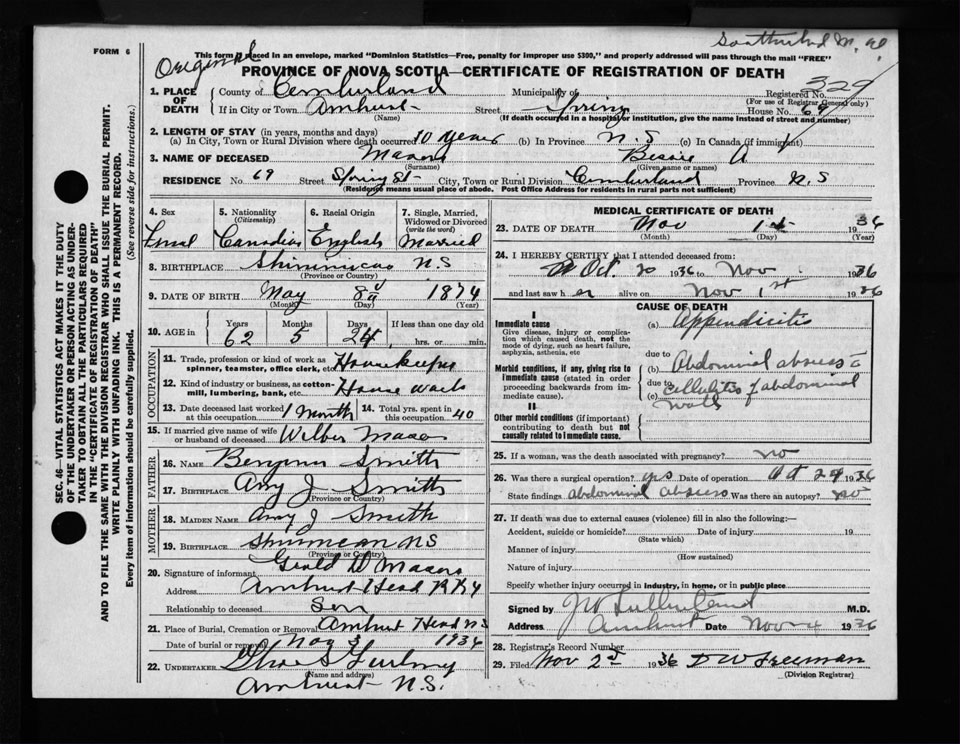 FORM 6
Original
This form placed in an envelope, marked "Dominion Statistics—Free, penalty for improper use $300," and properly addressed will pass through the mail "FREE"
PROVINCE OF NOVA SCOTIA—CERTIFICATE OF REGISTRATION OF DEATH
1. PLACE OF DEATH County of Cumberland Municipality of Registered No. 329
(For use of Registrar General only)
If in City or Town Amherst Street Spring House No. 69
(Name) (If death occurred in a hospital or institution, give the name instead of street and number)
2. LENGTH OF STAY (in years, months and days)
(a) In City, Town or Rural Division where death occurred 10 years (b) In Province N.S (c) In Canada (if immigrant)
3. NAME OF DECEASED Bessie A
(Surname) (Given name or names)
RESIDENCE No. 69 Street Spring St City, Town or Rural Division Cumberland Province N.S
(Residence means usual place of abode. Post Office Address for residents in rural parts not sufficient)
SEC. 46—VITAL STATISTICS ACT MAKES IT THE DUTY
OF THE UNDERTAKER OR PERSON ACTING AS UNDER-
TAKER TO OBTAIN ALL THE PARTICULARS REQUIRED
IN THE "CERTIFICATE OF REGISTRATION OF DEATH"
AND TO FILE THE SAME WITH THE DIVISION REGISTRAR WHO SHALL ISSUE THE BURIAL PERMIT.
WRITE PLAINLY WITH UNFADING INK. THIS IS A PERMANENT RECORD.
Every item of information should be carefully supplied. (See reverse side for instructions.)
4. Sex 5. Nationality 6. Racial Origin 7. Single, Married, Widowed or Divorced
(Citizenship) (write the word)
Canadian English Married
8. BIRTHPLACE N.S
(Province or Country)
9. DATE OF BIRTH May 8 1874
(Month) (Day) (Year)
10. AGE in Years Months Days If less than one day old
62 5 24 hrs. or min.
OCCUPATION
11. Trade, profession or kind of work as spinner, teamster, office clerk, etc. Housekeeper
12. Kind of industry or business, as cotton-mill, lumbering, bank, etc. House work
13. Date deceased last worked at this occupation 1 month 14. Total yrs. spent in this occupation 40
15. If married give name of wife or husband of deceased Wilber
FATHER
16. NAME Smith
17. BIRTHPLACE Amy J Smith
(Province or Country)
MOTHER
18. MAIDEN NAME Amy J Smith
19. BIRTHPLACE NS
(Province or Country)
20. Signature of informant
Address Amherst Head
Relationship to deceased Son
21. Place of Burial, Cremation or Removal Amherst Head N S
Date of burial or removal Nov 3 1936
22. UNDERTAKER
(Name and address)
Amherst N.S.
MEDICAL CERTIFICATE OF DEATH
23. DATE OF DEATH Nov 1st 1936
(Month) (Day) (Year)
24. I HEREBY CERTIFY that I attended deceased from:
Oct. 20 1936 to Nov 1 1936
and last saw her alive on Nov 1st 1936
CAUSE OF DEATH
I
Immediate cause
Give disease, injury or complication which caused death, not the mode of dying, such as heart failure, asphyxia, asthenia, etc
(a) Appendicitis
due to
Morbid conditions, if any, giving rise to immediate cause (stated in order proceeding backwards from immediate cause).
(b) Abdominal abscess
due to
(c) cellulitis of abdominal
walls
II
Other morbid conditions (if important) contributing to death but not causally related to immediate cause.
25. If a woman, was the death associated with pregnancy? no
26. Was there surgical operation? yes Date of operation Oct 29 1936
State findings abdominal abscess Was there an autopsy? no
27. If death was due to external causes (violence) fill in also the following:—
Accident, suicide or homicide? Date of injury 19
(State which)
Manner of injury
(How sustained)
Nature of injury
Specify whether injury occurred in industry, in home, or in public place
Signed by M.D.
Address Amherst Date Nov 4 1936
28. Registrar's Record Number
29. Filed Nov 2 1936 D W Freeman
(Division Registrar)